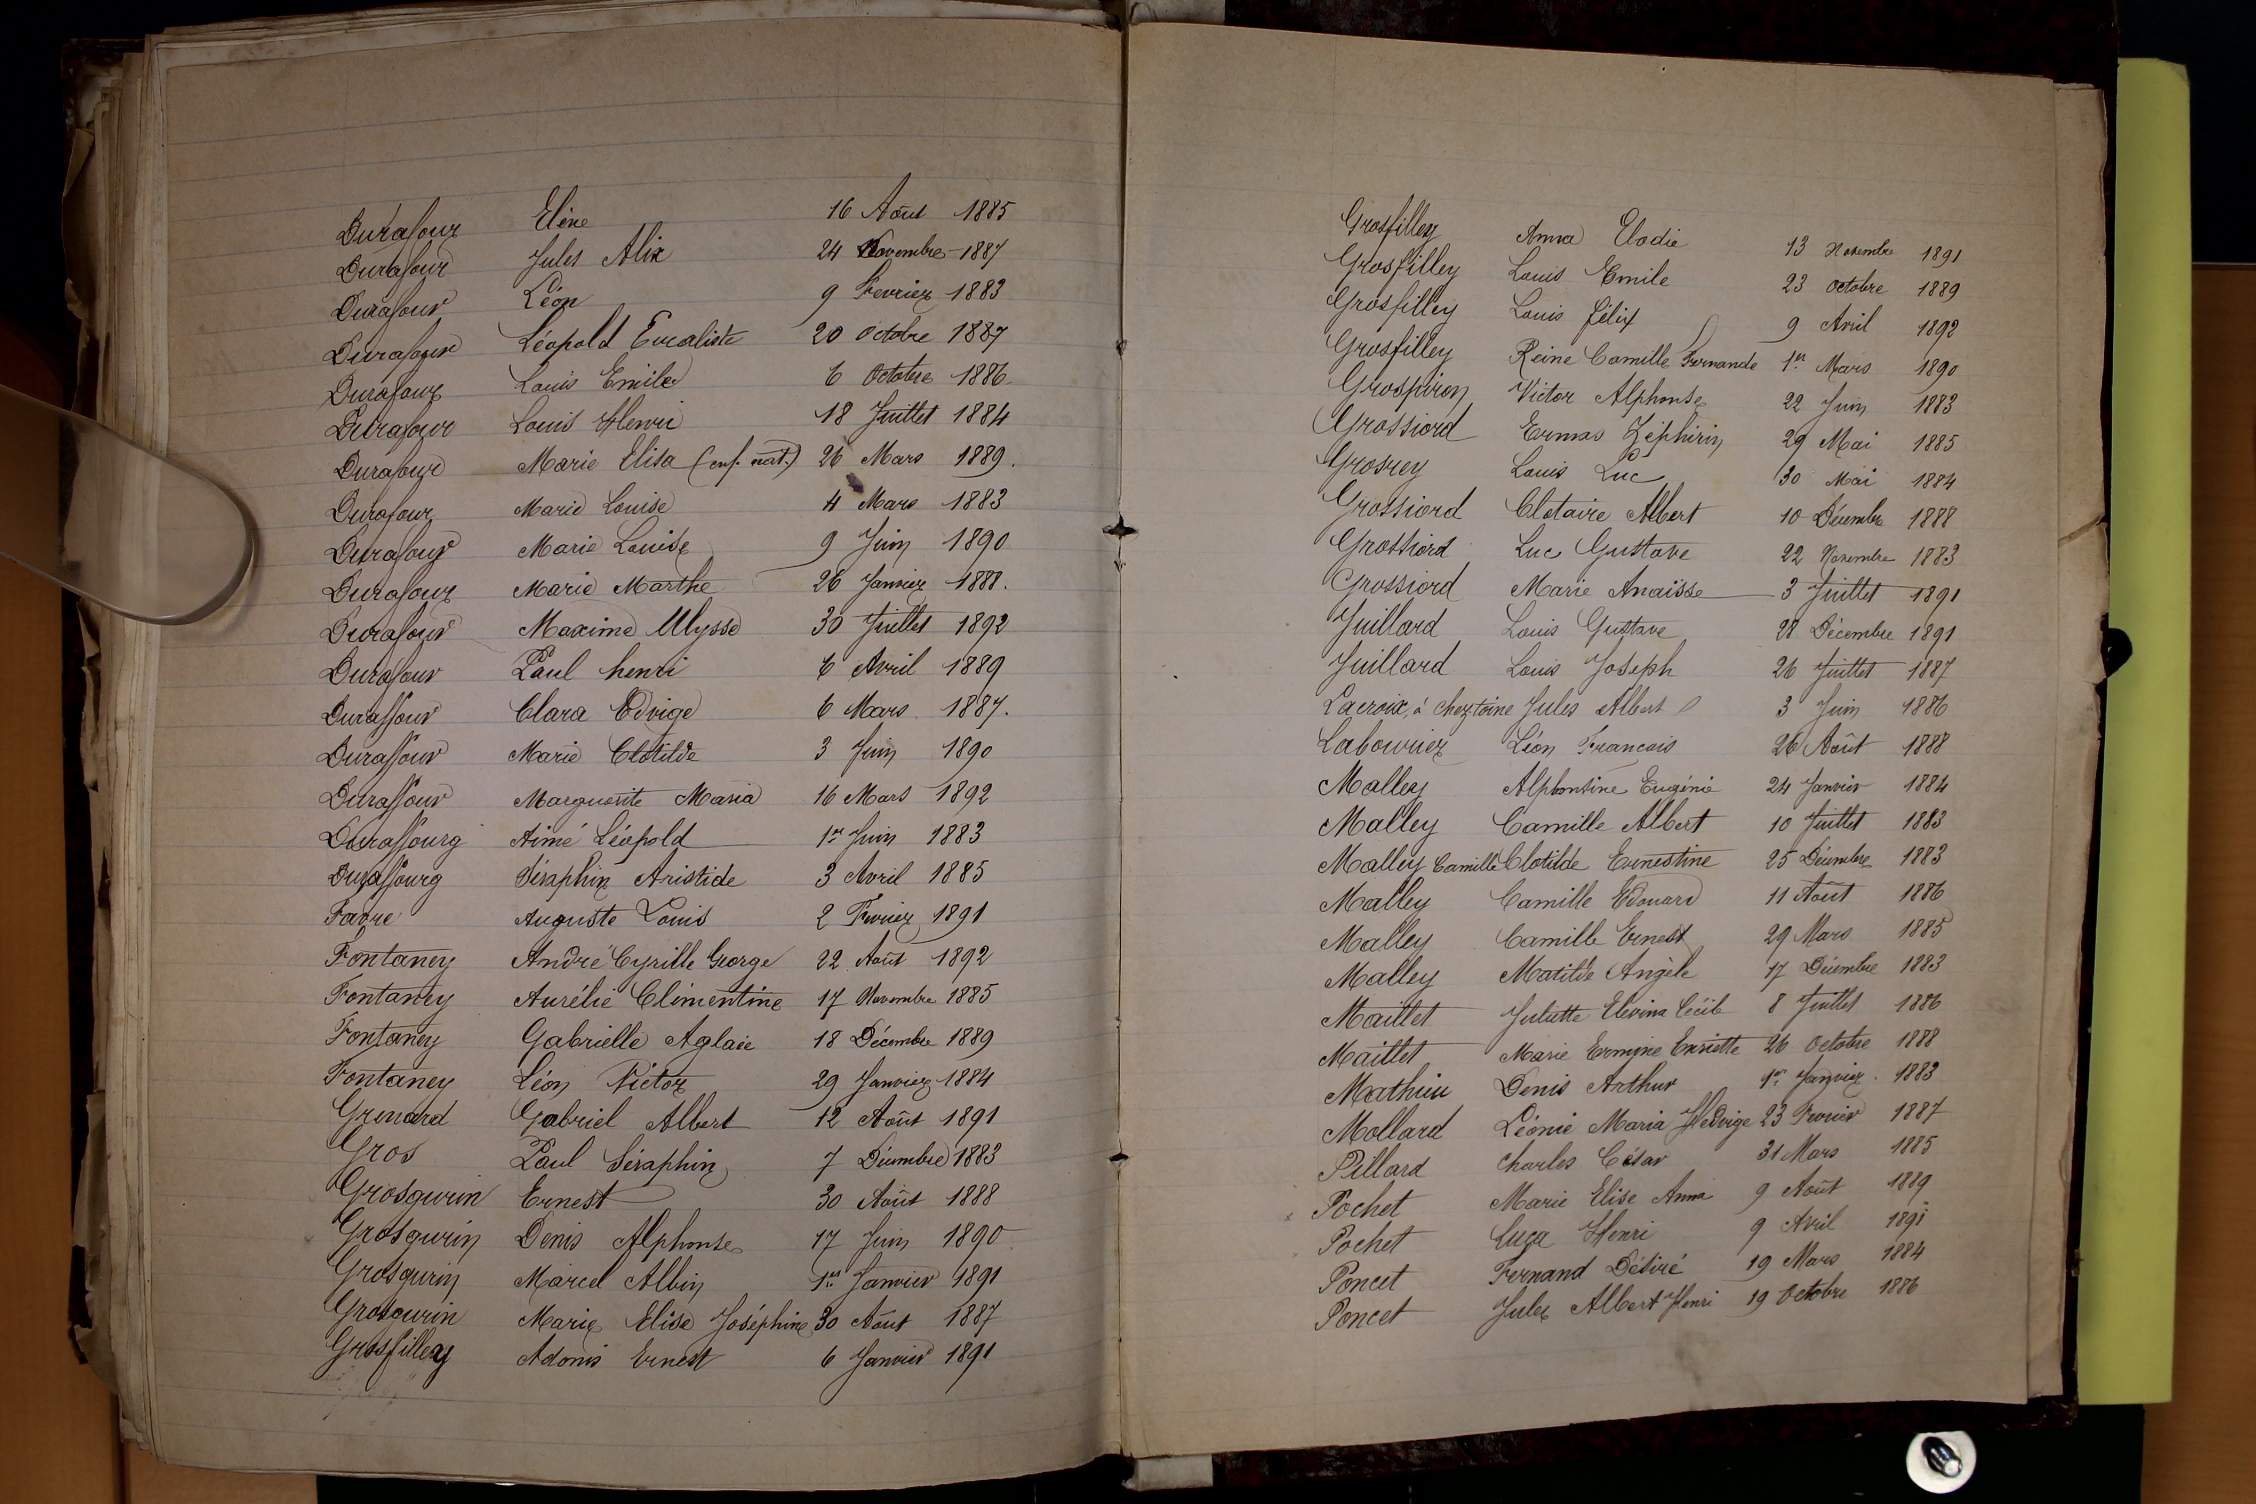 Durafour Elène 16 Août 1885
Durafour Jules Alix 24 Novembre 1887
Durafour Léon 9 Fevrier 1883
Durafour Léopold Eucaliste 20 Octobre 1887
Durafour Louis Emile 6 Octobre 1886
Durafour Louis Henri 18 Juillet 1884
Durafour Marie Elisa (enf. nat.) 26 Mars 1889.
Durafour Marie Louise 4 Mars 1883
Durafour Marie Louise 9 Juin 1890
Durafour Marie Marthe 26 Janvier 1888.
Durafour Maxime Ulysse 30 Juillet 1892
Durafour Paul henri 6 Avril 1889
Duraffour Clara Edvige 6 Mars 1887.
Duraffour Marie Clotilde 3 Juin 1890
Duraffour Marguerite Maria 16 Mars 1892
Duraffourg Aimé Léopold 1er Juin 1883
Duraffourg Séraphin Aristide 3 Avril 1885
Favre Auguste Louis 2 Fevrier 1891
Fontaney André Cyrille George 22 Août 1892
Fontaney Aurélie Clémentine 17 Novembre 1885
Fontaney Gabrielle Aglaïe 18 Décembre 1889
Fontaney Léon Victor 29 Janvier 1884
Grenard Gabriel Albert 12 Août 1891
Gros Paul Séraphin 7 Décembre 1883
Grosgurin Ernest 30 Août 1888
Grosgurin Denis Alphonse 17 Juin 1890
Grosgurin Marcel Albin 1er Janvier 1891
Grosgurin Marie Elise Joséphine 30 Août 1887
Grosfilley Adonis Ernest 6 Janvier 1891
Grosfilley Anna Elodie 13 Novembre 1891
Grosfilley Louis Emile 23 octobre 1889
Grosfilley Louis Félix 9 Avril 1892
Grosfilley Reine Camille Fernande 1er Mars 1890
Grospiron Victor Alphonse 22 Juin 1883
Grossiord Ermas Zéphirin 29 Mai 1885
Grosrey Louis Luc 30 Mai 1884
Grossiord Clotaire Albert 10 Décembre 1888
Grossiord Luc Gustave 22 Novembre 1883
Grossiord Marie Anaïsse 3 Juillet 1891
Juillard Louis Gustave 28 Décembre 1891
Juillard Louis Joseph 26 Juillet 1887
Lacroix, à cheztoine Jules Albert 3 Juin 1886
Labourier Léon Francois 26 Août 1888
Malley Alphonsine Eugénie 24 Janvier 1884
Malley Camille Albert 10 Juillet 1883
Malley Camille Clotilde Ernestine 25 Décembre 1883
Malley Camille Edouard 11 Août 1886
Malley Camille Ernest 29 Mars 1885
Malley Matilde Angèle 17 Décembre 1883
Maillet Juliette Elevina Cécile 8 Juillet 1886
Maillet Marie Ermine Enriette 26 Octobre 1888
Mathieu Denis Arthur 1er Janvier 1883
Mollard Léonie Maria Hedvige 23 Fevrier 1887
Pillard Charles César 31 Mars 1885
Pochet Marie Elise Anna 9 Août 1889
Pochet Luça Henri 9 Avril 1891
Poncet Fernand Désiré 19 Mars 1884
Poncet Jules Albert Henri 19 Octobre 1886